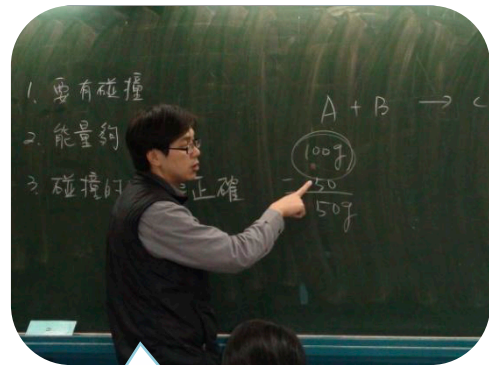 1. 要有碰撞
2. 能量夠
3. 碰撞的 正確
A + B → C
100g
- 50
50g